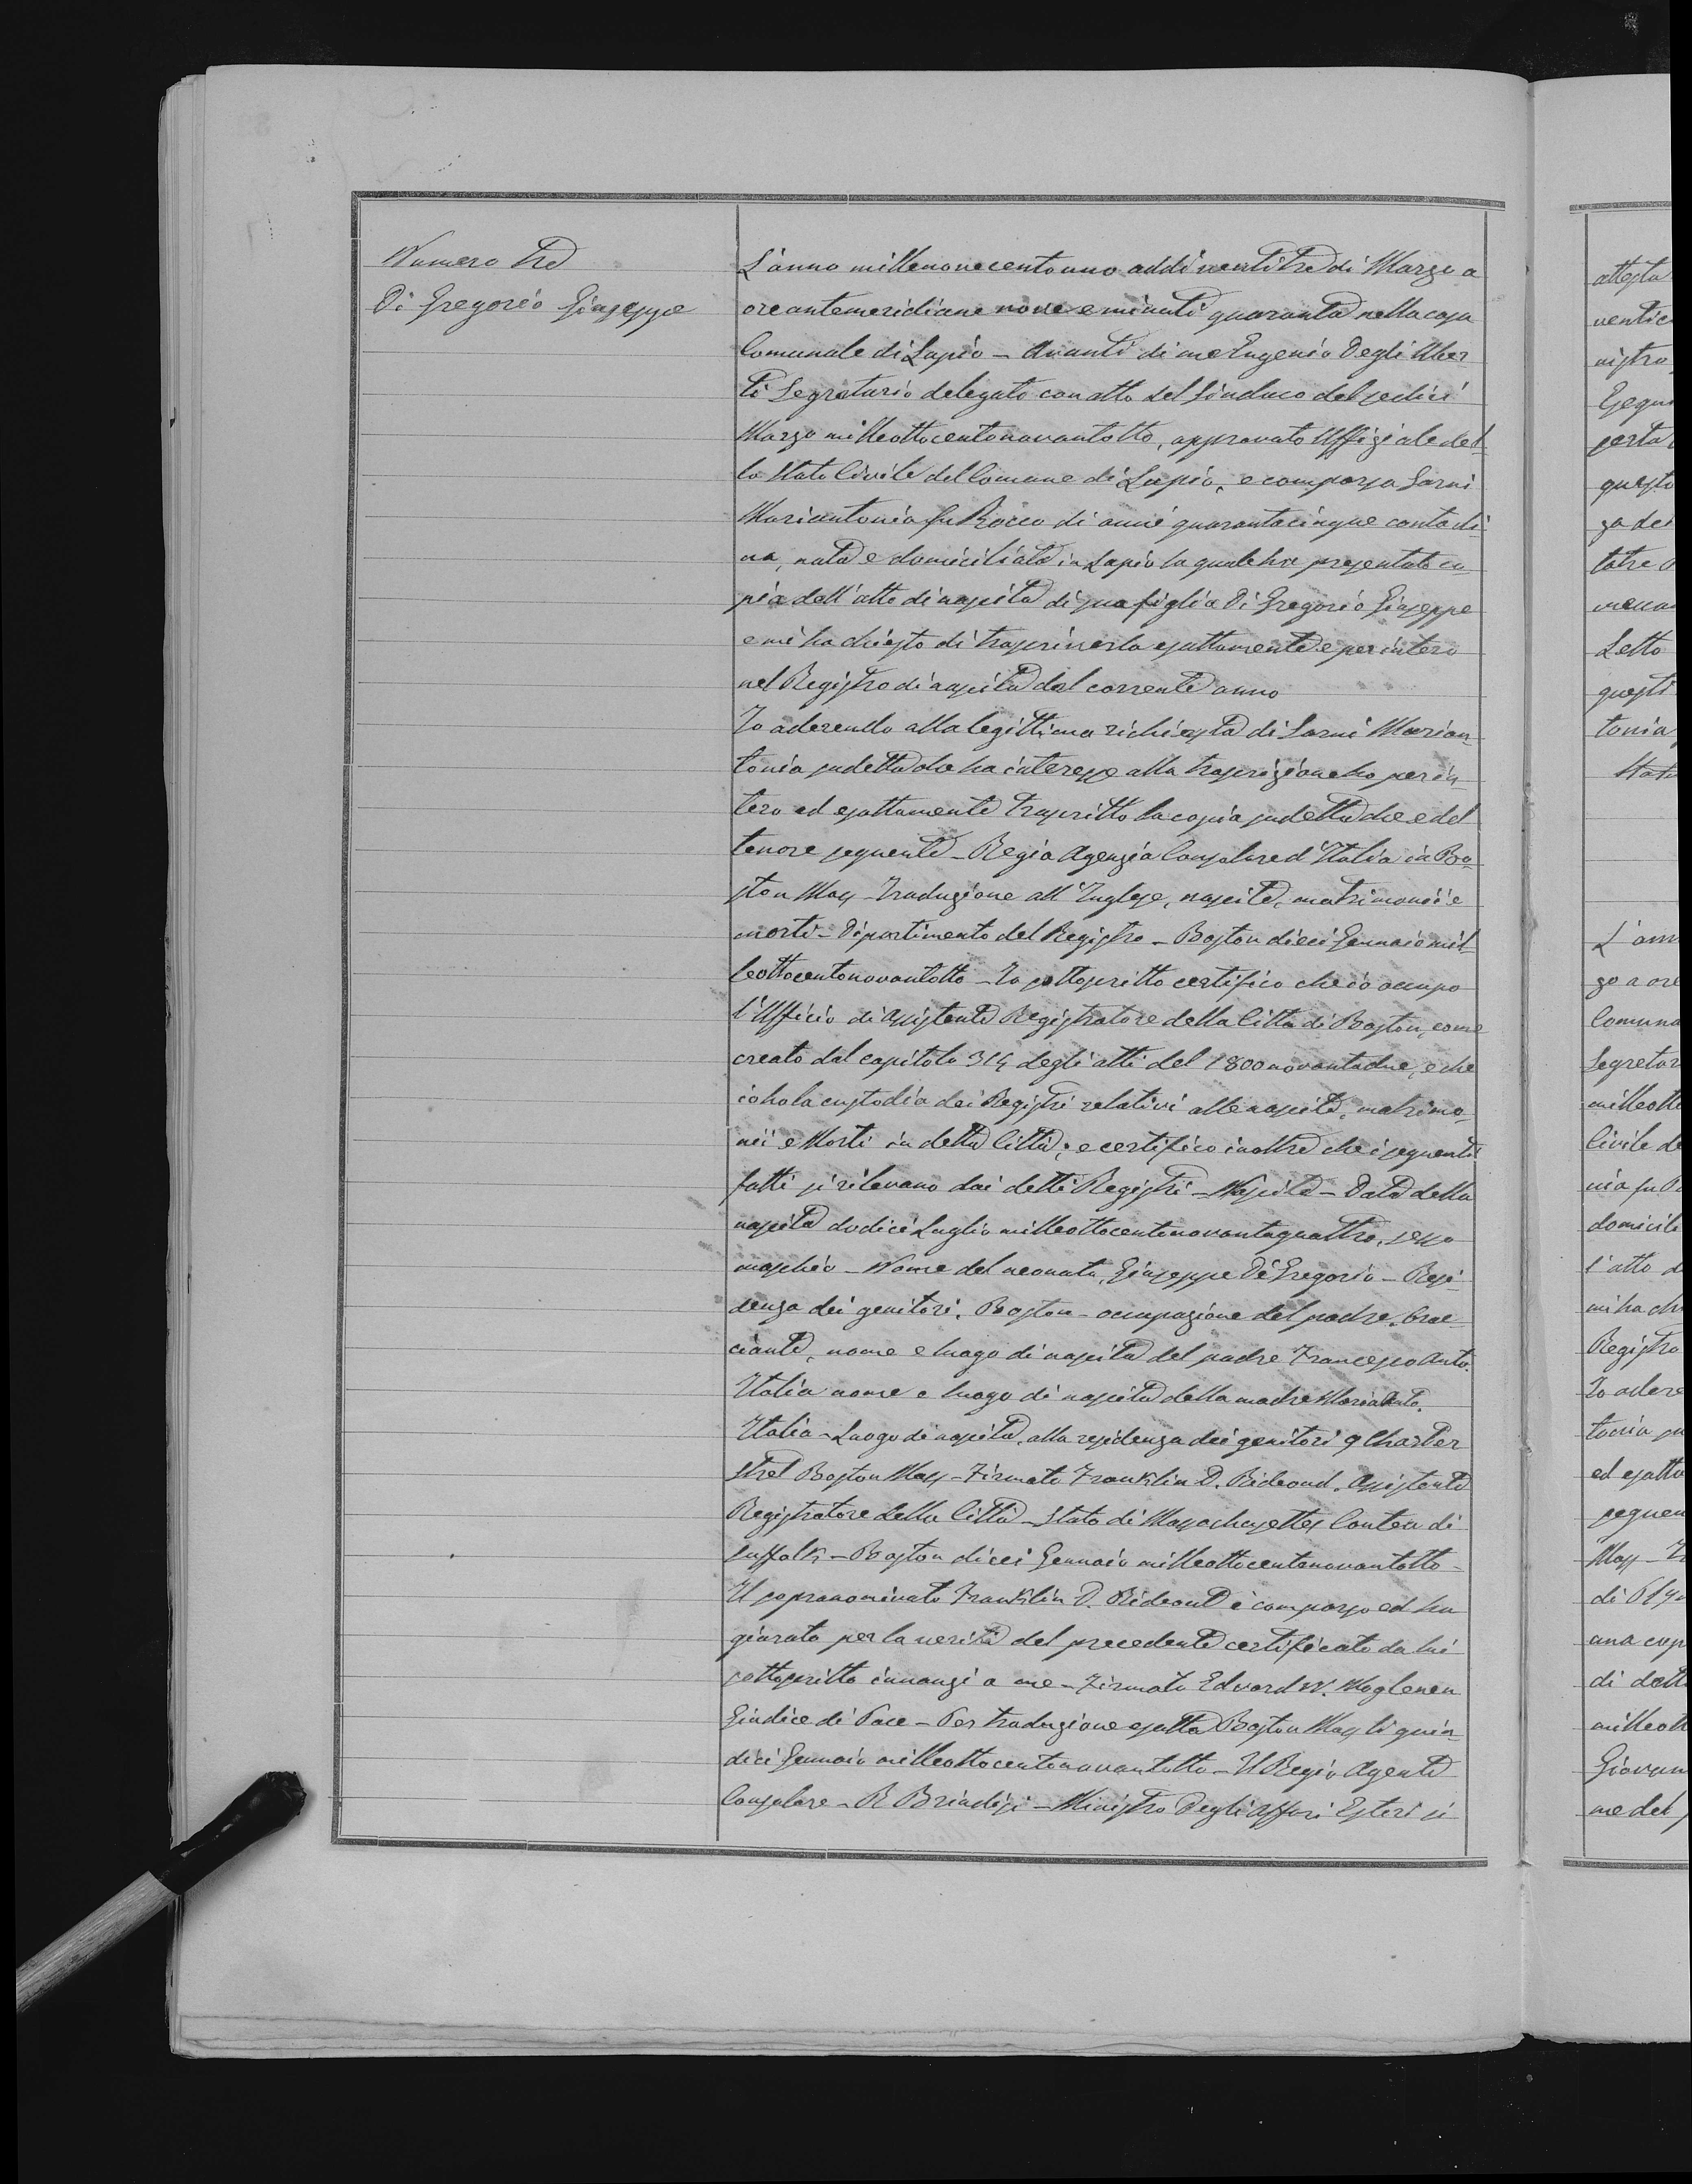 Numero Tre
Di Gregorio Giuseppe
L'anno millenovecentouno addì ventitre di Marzo a
ore antemeridiane nove e minuti quaranta nella casa
Comunale di Lapio - Avanti di me Eugenio Degli Uber
ti Segretario delegato con atto del Sindaco del sedici
Marzo milleottocentonovantotto, approvato Uffiziale del
lo Stato Civile del Comune di Lapio, è comparsa Sarni
Mariantonia fu Rocco di anni quarantacinque contadi
na, nata e domiciliata in Lapio la quale ha presentato co
pia dell'atto di nascita di sua figlia Di Gregorio Giuseppe
e mi ha chiesto di trascriverla esattamente e per intero
nel Registro di nascita del corrente anno
Io aderendo alla legittima richiesta di Sarni Marian
tonia sudetta che ha interesse alla trascrizione ho per in
tero ed esattamente trascritto la copia sudetta che è del
tenore seguente - Regia Agenzia Consolare d'Italia in Bo
ston Mass - Traduzione all'Inglese, nascite, matrimonii e
morti - Dipartimento del Registro - Boston dieci Gennaio mil
leottocentonovantotto - Io sottoscritto certifico che io occupo
l'Ufficio di Assistente Registratore della Città di Boston, come
creato dal capitolo 314 degli atti del 1800novantadue, e che
io ho la custodia dei Registri relativi alle nascite, matrimo
nii e Morti in detta Città; e certifico inoltre che i seguenti
fatti si rilevano dai detti Registri - Nascite - Data della
nascita dodici Luglio milleottocentonovantaquattro, sesso
maschio - Nome del neonato, Giuseppe Di Gregorio - Resi
denza dei genitori, Boston - occupazione del padre, brac
ciante, nome e luogo di nascita del padre Francesco Anto.
Italia nome e luogo di nascita della madre Maria Anto.
Italia - Luogo di nascita, alla residenza dei genitori 9 Charter
Stret Boston Mass - Firmato Franklin D. Rideout, Assistente
Registratore della Città - Stato di Massachusettes Contea di
Suffolk - Boston dieci Gennaio milleottocentonovantotto -
Il sopranominato Franklin D. Rideout è comparso ed ha
giurato per la verità del precedente certificato da lui
sottoscritto innanzi a me - Firmato Edward W.
Giudice di Pace - Per traduzione esatta Boston Mass li quin
dici Gennaio milleottocentonovantotto - Il Regio Agente
Consolare - R Brindisi - Ministro Degli Affari Esteri si
attesta
ventic
nistro
Esegui
porta
questo
za de
tatre
Letto
questi
tonia
Stato
L'ann
zo a ore
Comuna
Segretar
milleotto
Civile de
nia fu
domicili
l'atto d
mi ha ch
Registro
Io adere
tonia su
ed esatta
seguen
Mass -
di
una cop
di dett
milleott
Giovan
me del